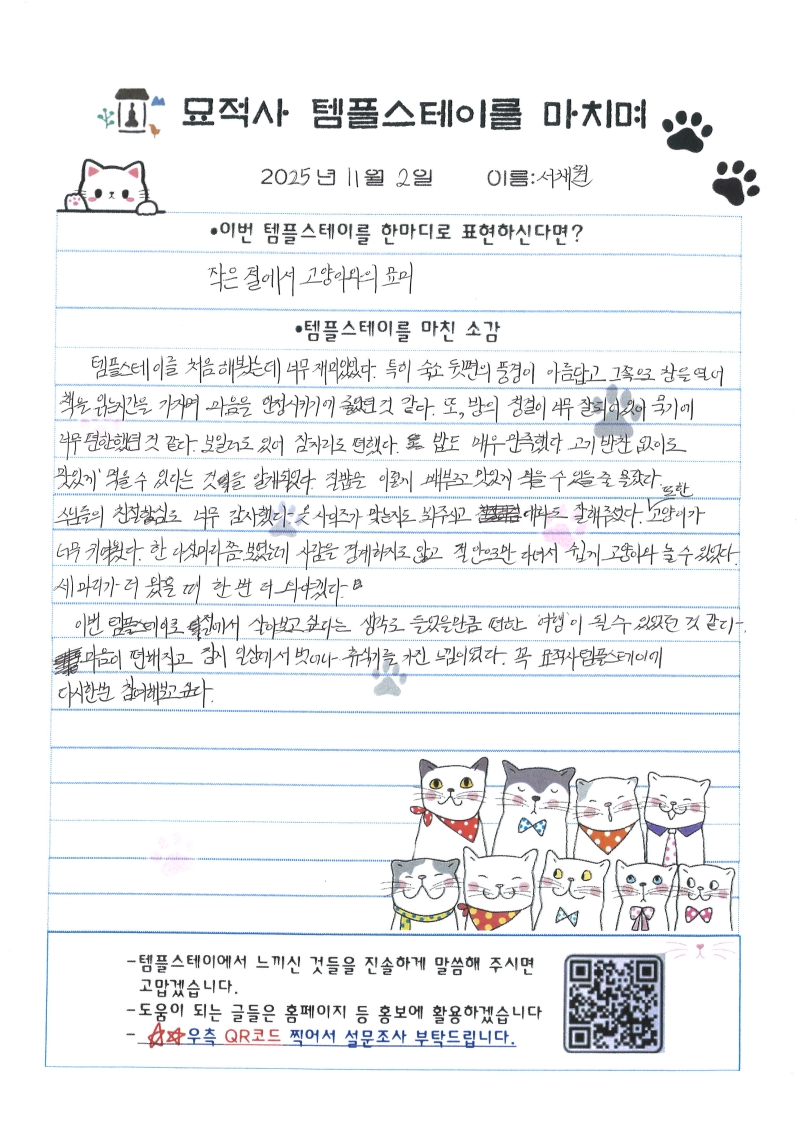 묘적사 템플스테이를 마치며
2025년 11월 2일 이름:서채원
•이번 템플스테이를 한마디로 표현하신다면?
작은 절에서 고양이와의 묘미
•템플스테이를 마친 소감
템플스테이를 처음 해봤는데 너무 재미있었다. 특히 숙소 뒷편의 풍경이 아름답고 그쪽으로 창을 열어
책을 읽는시간을 가지며 마음을 안정시키기에 좋았던 것 같다. 또, 방의 청결이 너무 잘되어있어 묵기에
너무 편한했던 것 같다. 보일러도 있어 잠자리도 편했다. 밥도 매우 만족했다 고기 반찬 없이도
맛있게 먹을 수 있다는 것을 알게되었다 절밥은 이렇게 배부르고 맛있게 먹을 수 있을 줄 몰랐다.
스님들의 친절함도 너무 감사했다 옷 사이즈가 맞는지도 봐주시고 대화도 잘해주셨다. 또한 고양이가
너무 귀여웠다. 한 다섯마리쯤 보였는데 사람을 경계하지도 않고 절 안으로만 다녀서 쉽게 고양이와 놀 수 있었다.
세 마리가 더 왔을 때 한 번 더 와야겠다.
이번 템플스테이로 절에서 살아보고 싶다는 생각도 들었을만큼 편한 '여행'이 될 수 있었던 것 같다.
마음이 편해지고 잠시 일상에서 벗어나 휴식기를 가진 느낌이었다. 꼭 묘적사템플스테이에
다시한번 참여해보고 싶다.
-템플스테이에서 느끼신 것들을 진솔하게 말씀해 주시면
고맙겠습니다.
-도움이 되는 글들은 홈페이지 등 홍보에 활용하겠습니다
- ☆☆우측 QR코드 찍어서 설문조사 부탁드립니다.